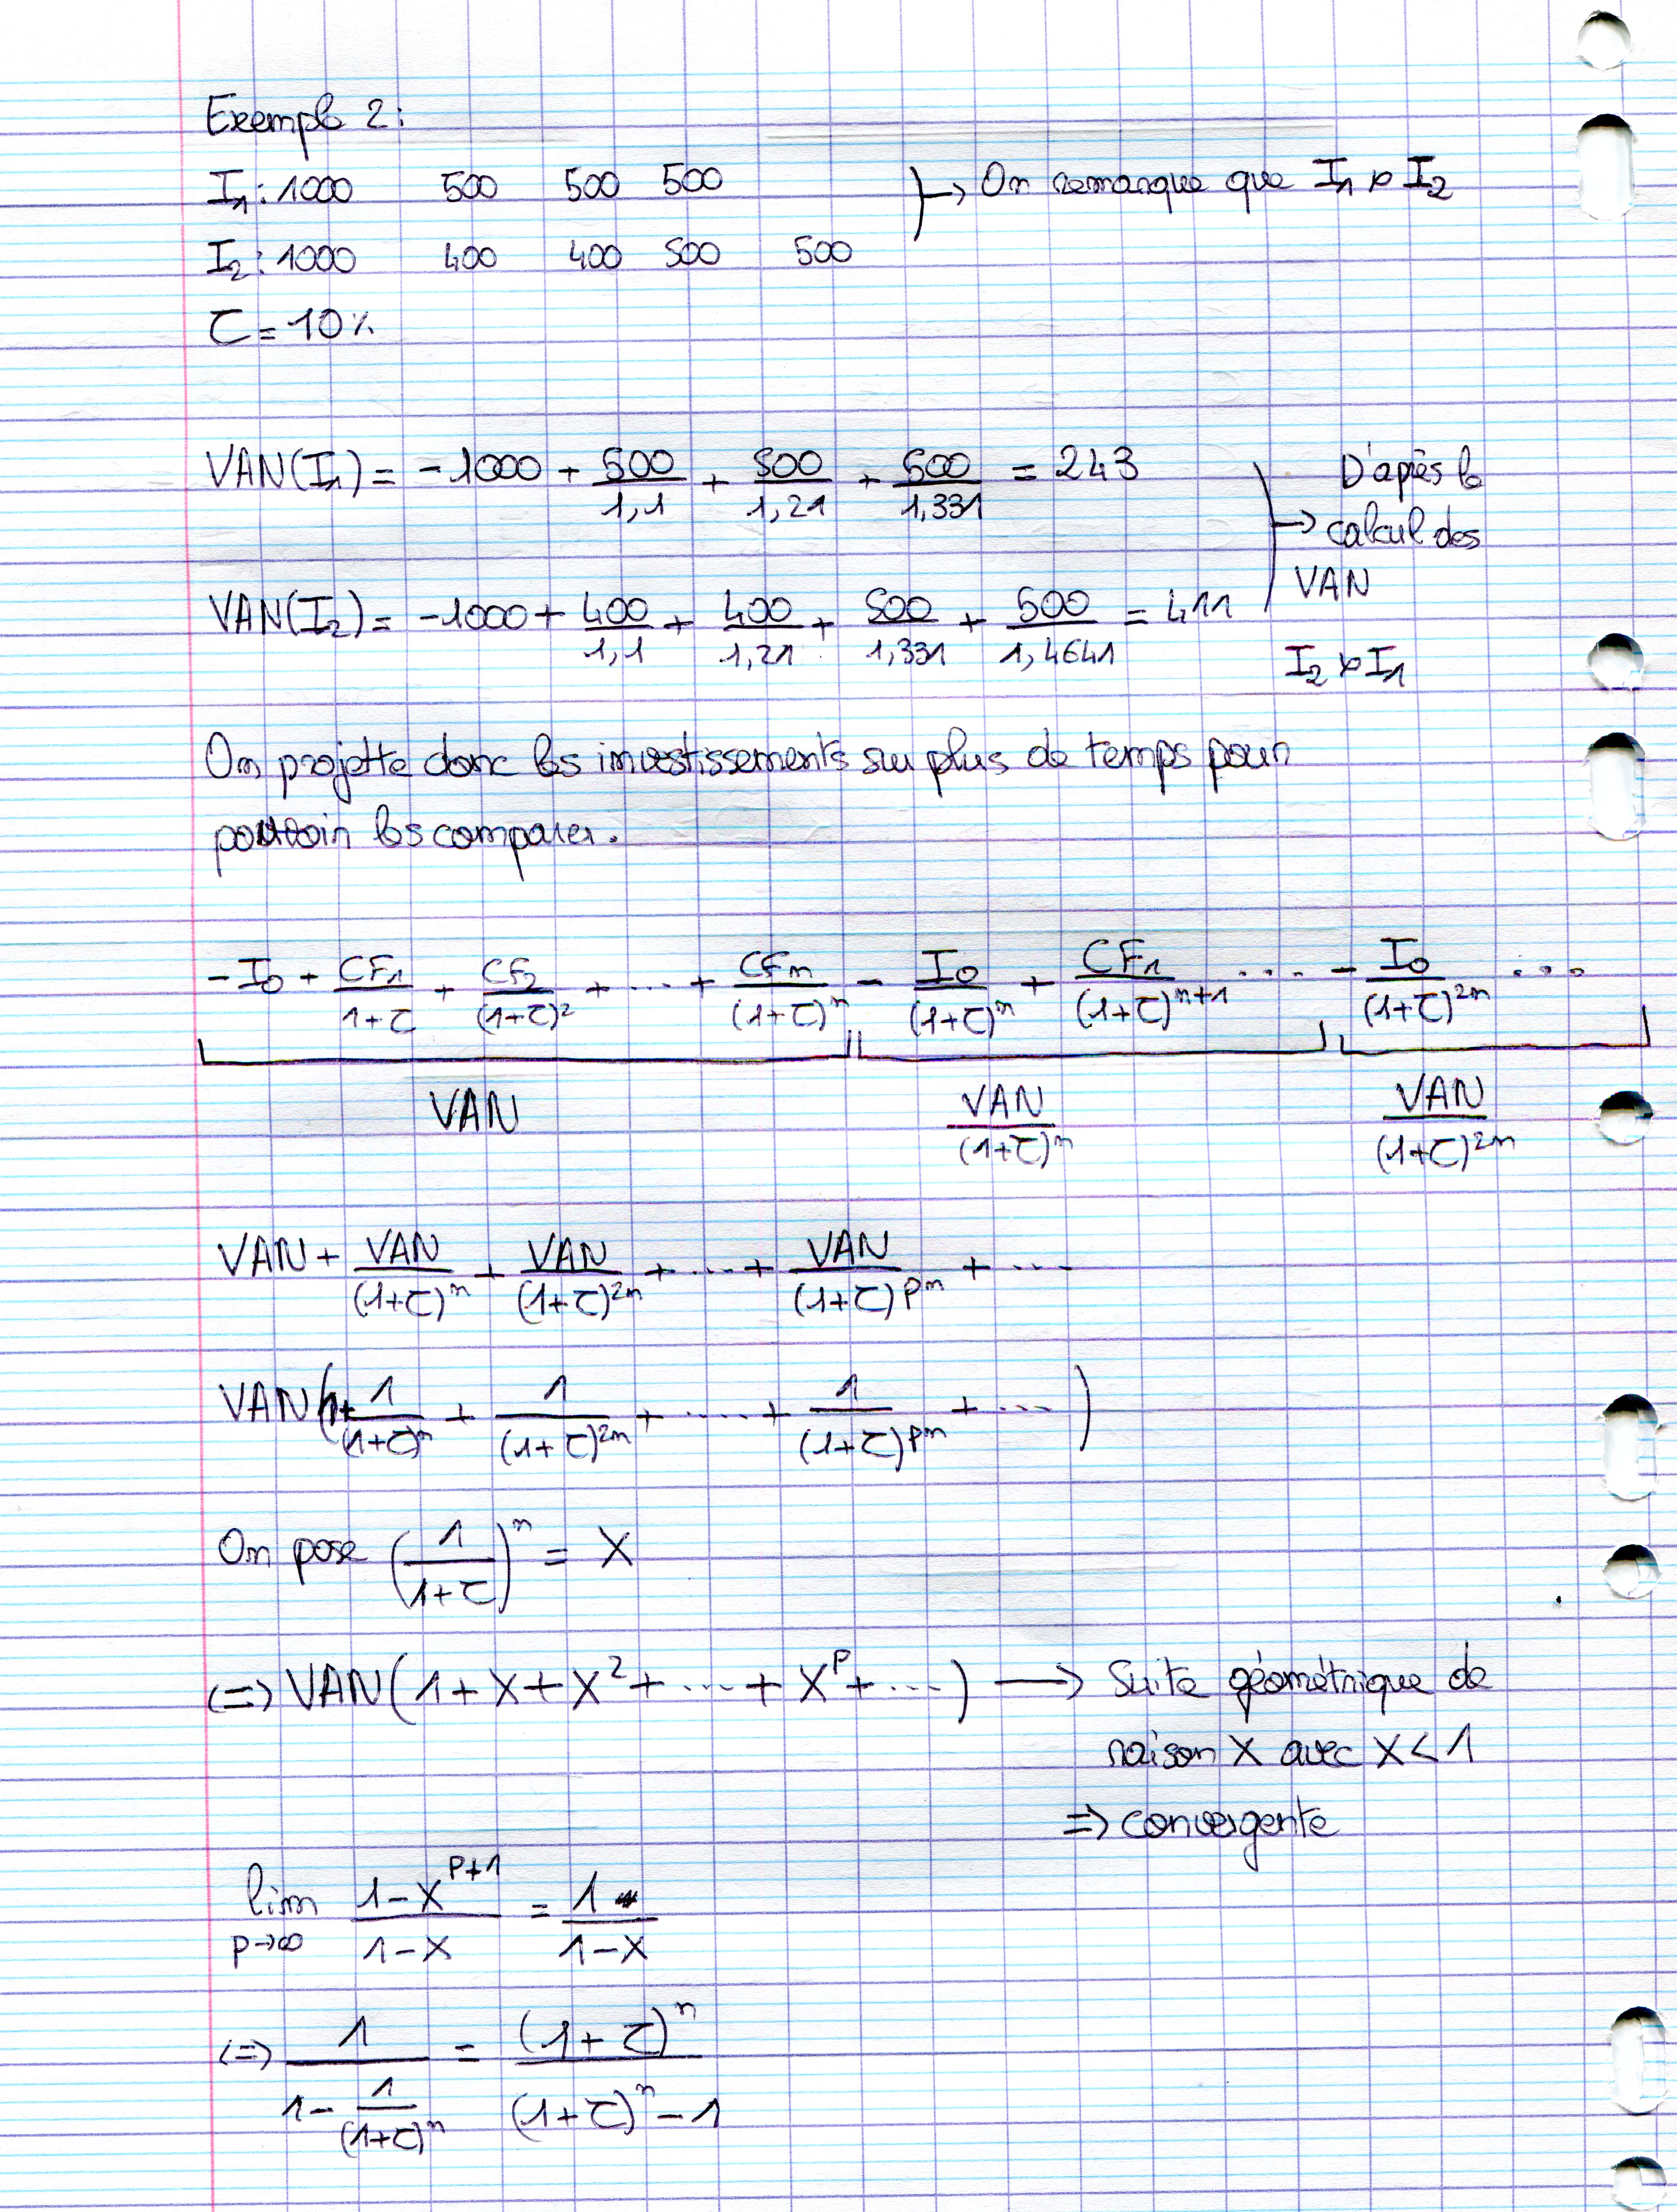 Exemple 2:
I₁: 1000 500 500 500 } → On remarque que I₁ ≻ I₂
I₂: 1000 400 400 500 500
τ = 10%
VAN(I₁) = -1000 + 500/1,1 + 500/1,21 + 500/1,331 = 243
VAN(I₂) = -1000 + 400/1,1 + 400/1,21 + 500/1,331 + 500/1,4641 = 411
} → D'après le
calcul des
VAN
I₂ ≻ I₁
On projette donc les investissements sur plus de temps pour
pouvoir les comparer.
-I₀ + CF₁/(1+τ) + CF₂/(1+τ)² + ... + CFn/(1+τ)ⁿ - I₀/(1+τ)ⁿ + CF₁/(1+τ)ⁿ⁺¹ .... - I₀/(1+τ)²ⁿ ...
VAN VAN/(1+τ)ⁿ VAN/(1+τ)²ⁿ
VAN + VAN/(1+τ)ⁿ + VAN/(1+τ)²ⁿ + ... + VAN/(1+τ)ᵖⁿ + ...
VAN(1 + 1/(1+τ)ⁿ + 1/(1+τ)²ⁿ + .... + 1/(1+τ)ᵖⁿ + ...)
On pose (1/(1+τ))ⁿ = X
(=) VAN(1 + X + X² + ... + Xᵖ + ...) → Suite géométrique de
raison X avec X < 1
=> convergente
lim p→∞ (1-Xᵖ⁺¹)/(1-X) = 1/(1-X)
(=) 1/(1 - 1/(1+τ)ⁿ) = (1+τ)ⁿ/((1+τ)ⁿ - 1)